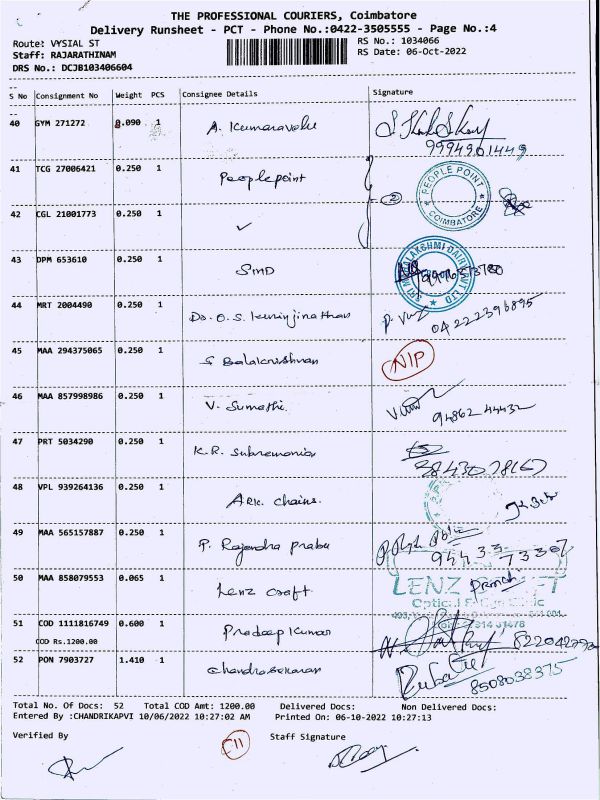 THE PROFESSIONAL COURIERS, Coimbatore
Delivery Runsheet - PCT - Phone No.:0422-3505555 - Page No.:4
Route: VYSIAL ST RS No.: 1034066
Staff: RAJARATHINAM RS Date: 06-Oct-2022
DRS No.: DCJB103406604
S No Consignment No Weight PCS Consignee Details Signature
40 GYM 271272 0.090 1 A. Kumaravelu
9994901449
41 TCG 27006421 0.250 1 Peoplepoint PEOPLE POINT COIMBATORE
42 CGL 21001773 0.250 1 ✓
43 DPM 653610 0.250 1 SMD
44 MRT 2004490 0.250 1 Dr. O.S. Kuninjinathan 04222396895
45 MAA 294375065 0.250 1 S Balakrishnan NIP
46 MAA 857998986 0.250 1 V. Sumathi. 94862 44432
47 PRT 5034290 0.250 1 K.R. Subremonia
48 VPL 939264136 0.250 1 ARK. Chains.
49 MAA 565157887 0.250 1 P. Rajendra prabu
94433 73307
50 MAA 858079553 0.065 1 Lenz craft LENZ
51 COD 1111816749 0.600 1 Pradeep Kumar
COD Rs.1200.00
52 PON 7903727 1.410 1 Chandrasekaran 8508038375
Total No. Of Docs: 52 Total COD Amt: 1200.00 Delivered Docs: Non Delivered Docs:
Entered By :CHANDRIKAPVI 10/06/2022 10:27:02 AM Printed On: 06-10-2022 10:27:13
Verified By Staff Signature